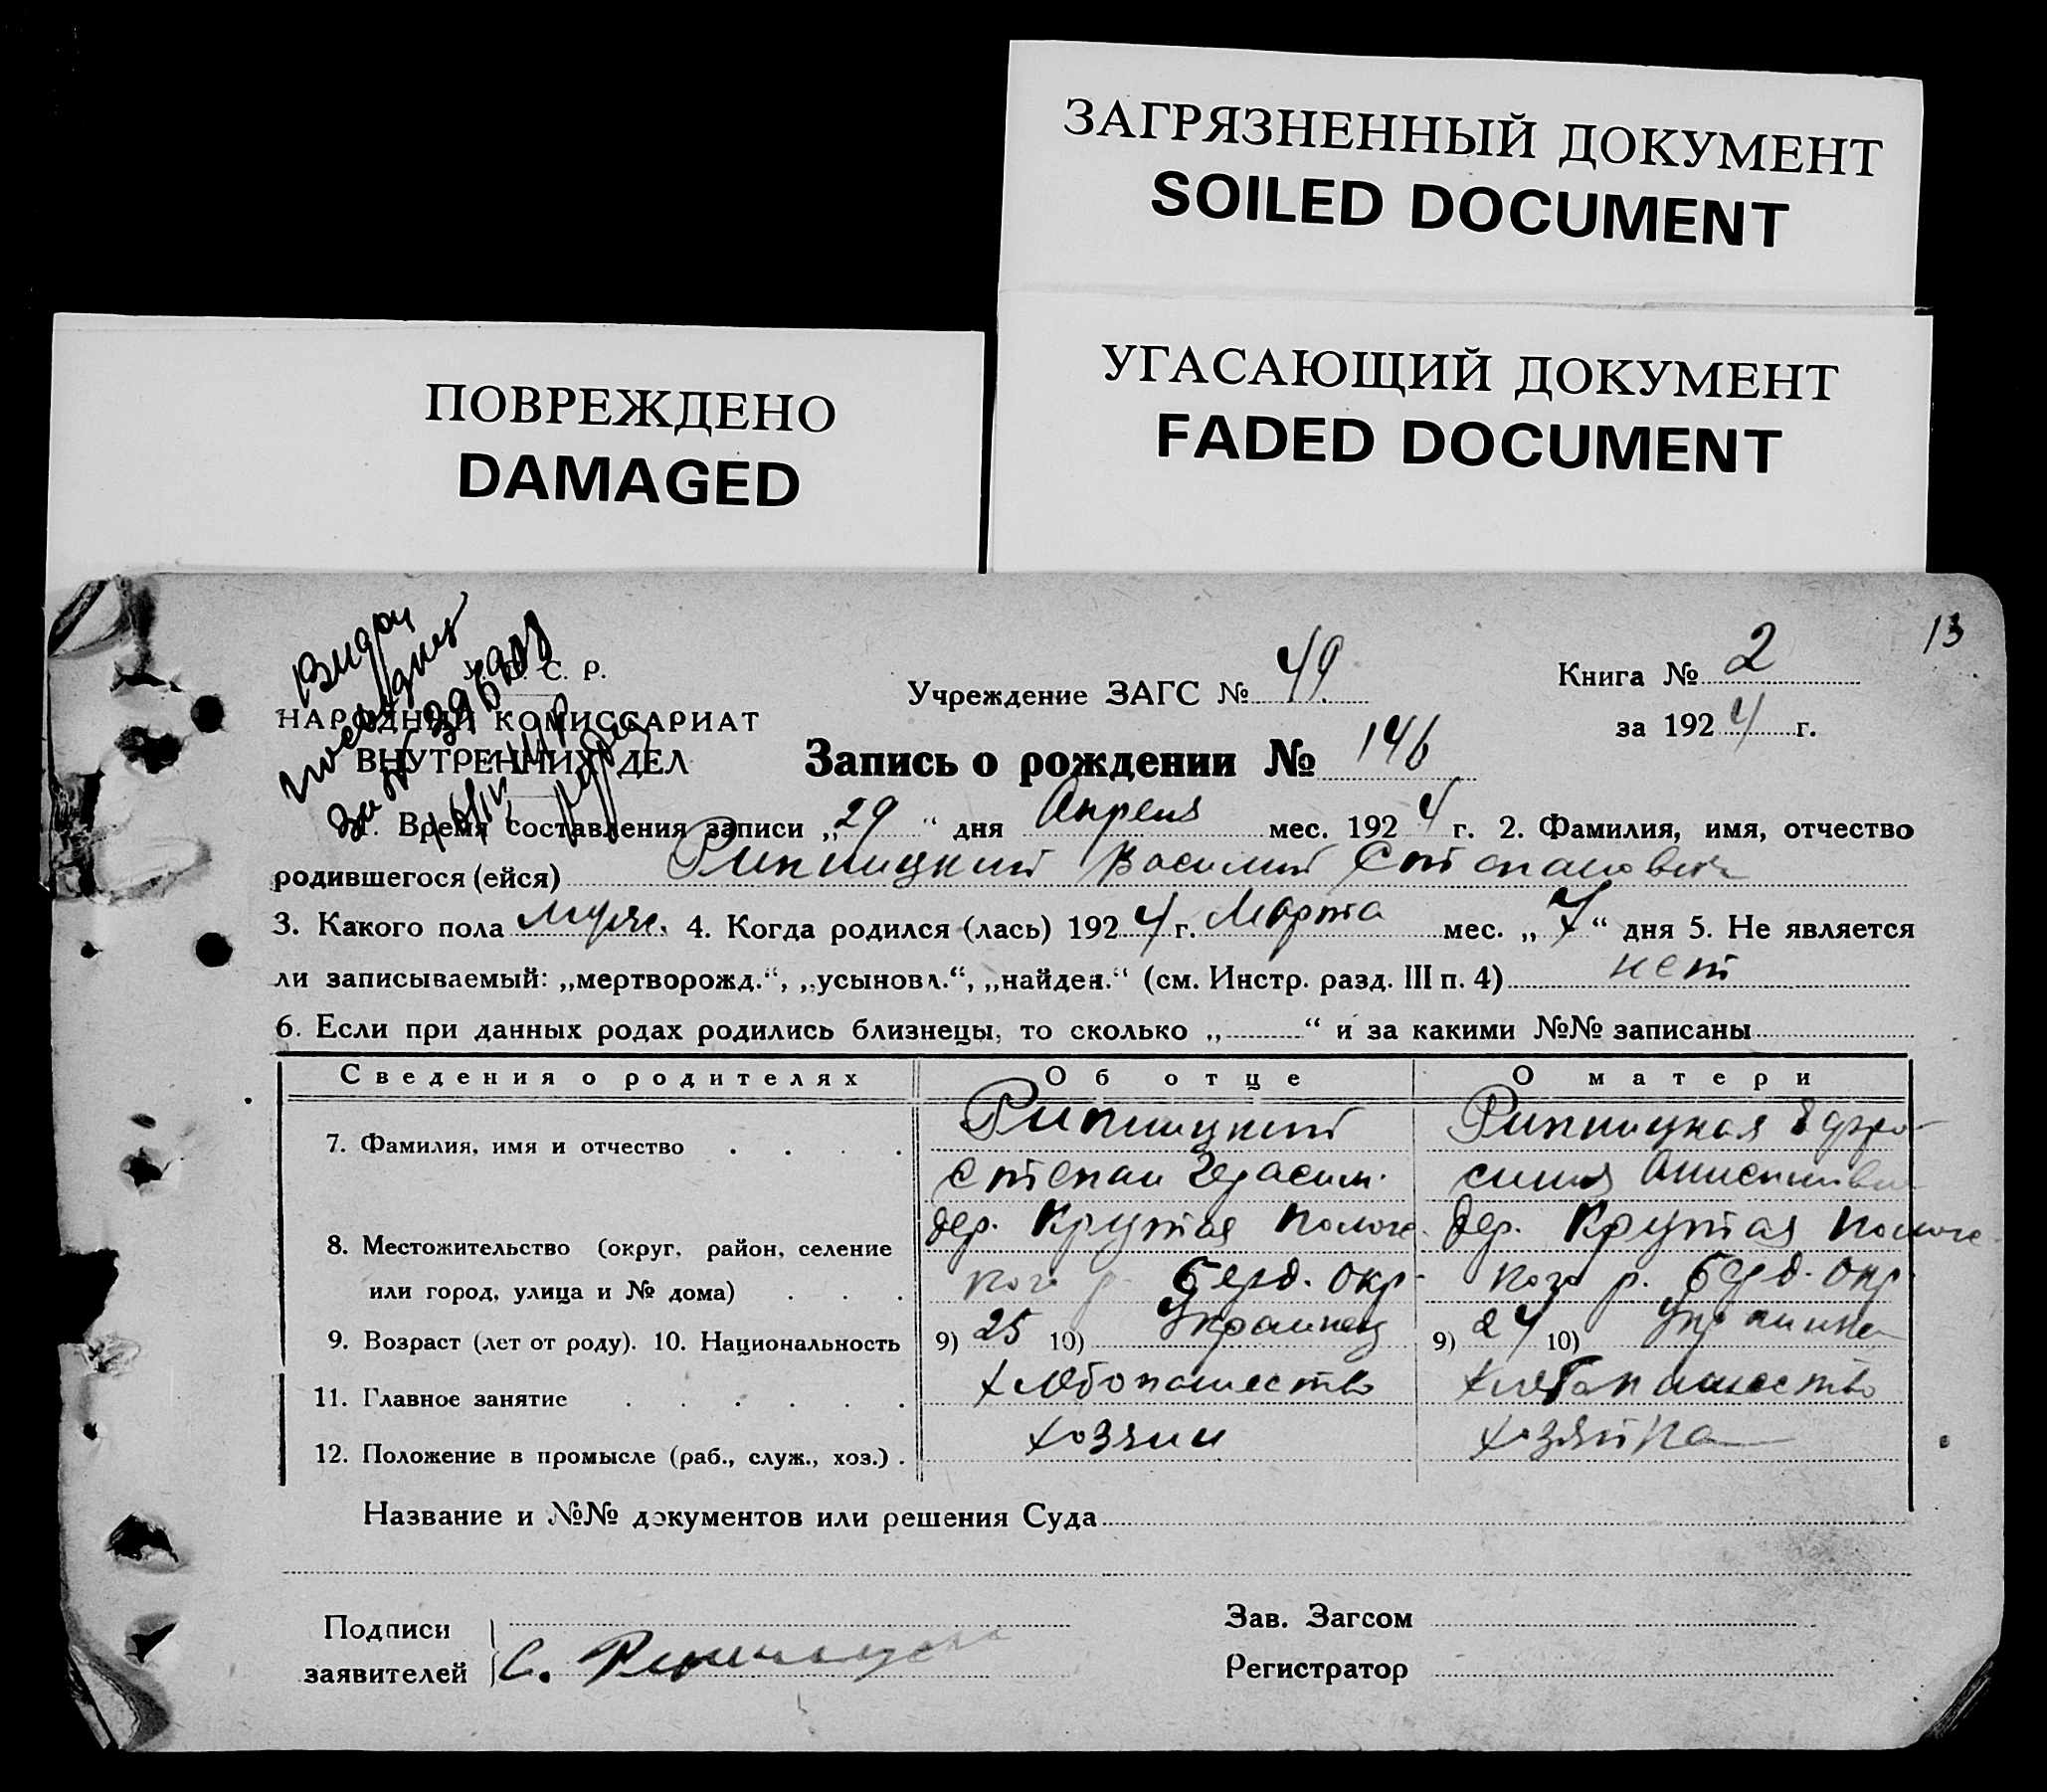 ЗАГРЯЗНЕННЫЙ ДОКУМЕНТ
SOILED DOCUMENT
УГАСАЮЩИЙ ДОКУМЕНТ
FADED DOCUMENT
ПОВРЕЖДЕНО
DAMAGED
13
С. Р.
НАРОДНЫЙ КОМИССАРИАТ
ВНУТРЕННИХ ДЕЛ
Учреждение ЗАГС № 49
Книга № 2
за 1924 г.
Запись о рождении № 146
1. Время составления записи „29“ дня Апреля мес. 1924 г. 2. Фамилия, имя, отчество
родившегося (ейся) Рипницкий Василий Степанович
3. Какого пола муж. 4. Когда родился (лась) 1924 г. Марта мес. „7“ дня 5. Не является
ли записываемый: „мертворожд.“, „усыновл.“, „найден.“ (см. Инстр. разд. III п. 4) нет
6. Если при данных родах родились близнецы, то сколько „ “ и за какими №№ записаны
Сведения о родителях Об отце О матери
7. Фамилия, имя и отчество Рипницкий Рипницкая Ефро-
Степан Герасим. синия
8. Местожительство (округ, район, селение дер. Крутая Пологс- дер. Крутая Пологс-
или город, улица и № дома) кого р. Берд. окр. кого р. Берд. окр.
9. Возраст (лет от роду). 10. Национальность 9) 25 10) Украинец 9) 24 10) Украинка
11. Главное занятие хлебопашество хлебопашество
12. Положение в промысле (раб., служ., хоз.) хозяин хозяйка
Название и №№ документов или решения Суда
Подписи
заявителей С.
Зав. Загсом
Регистратор